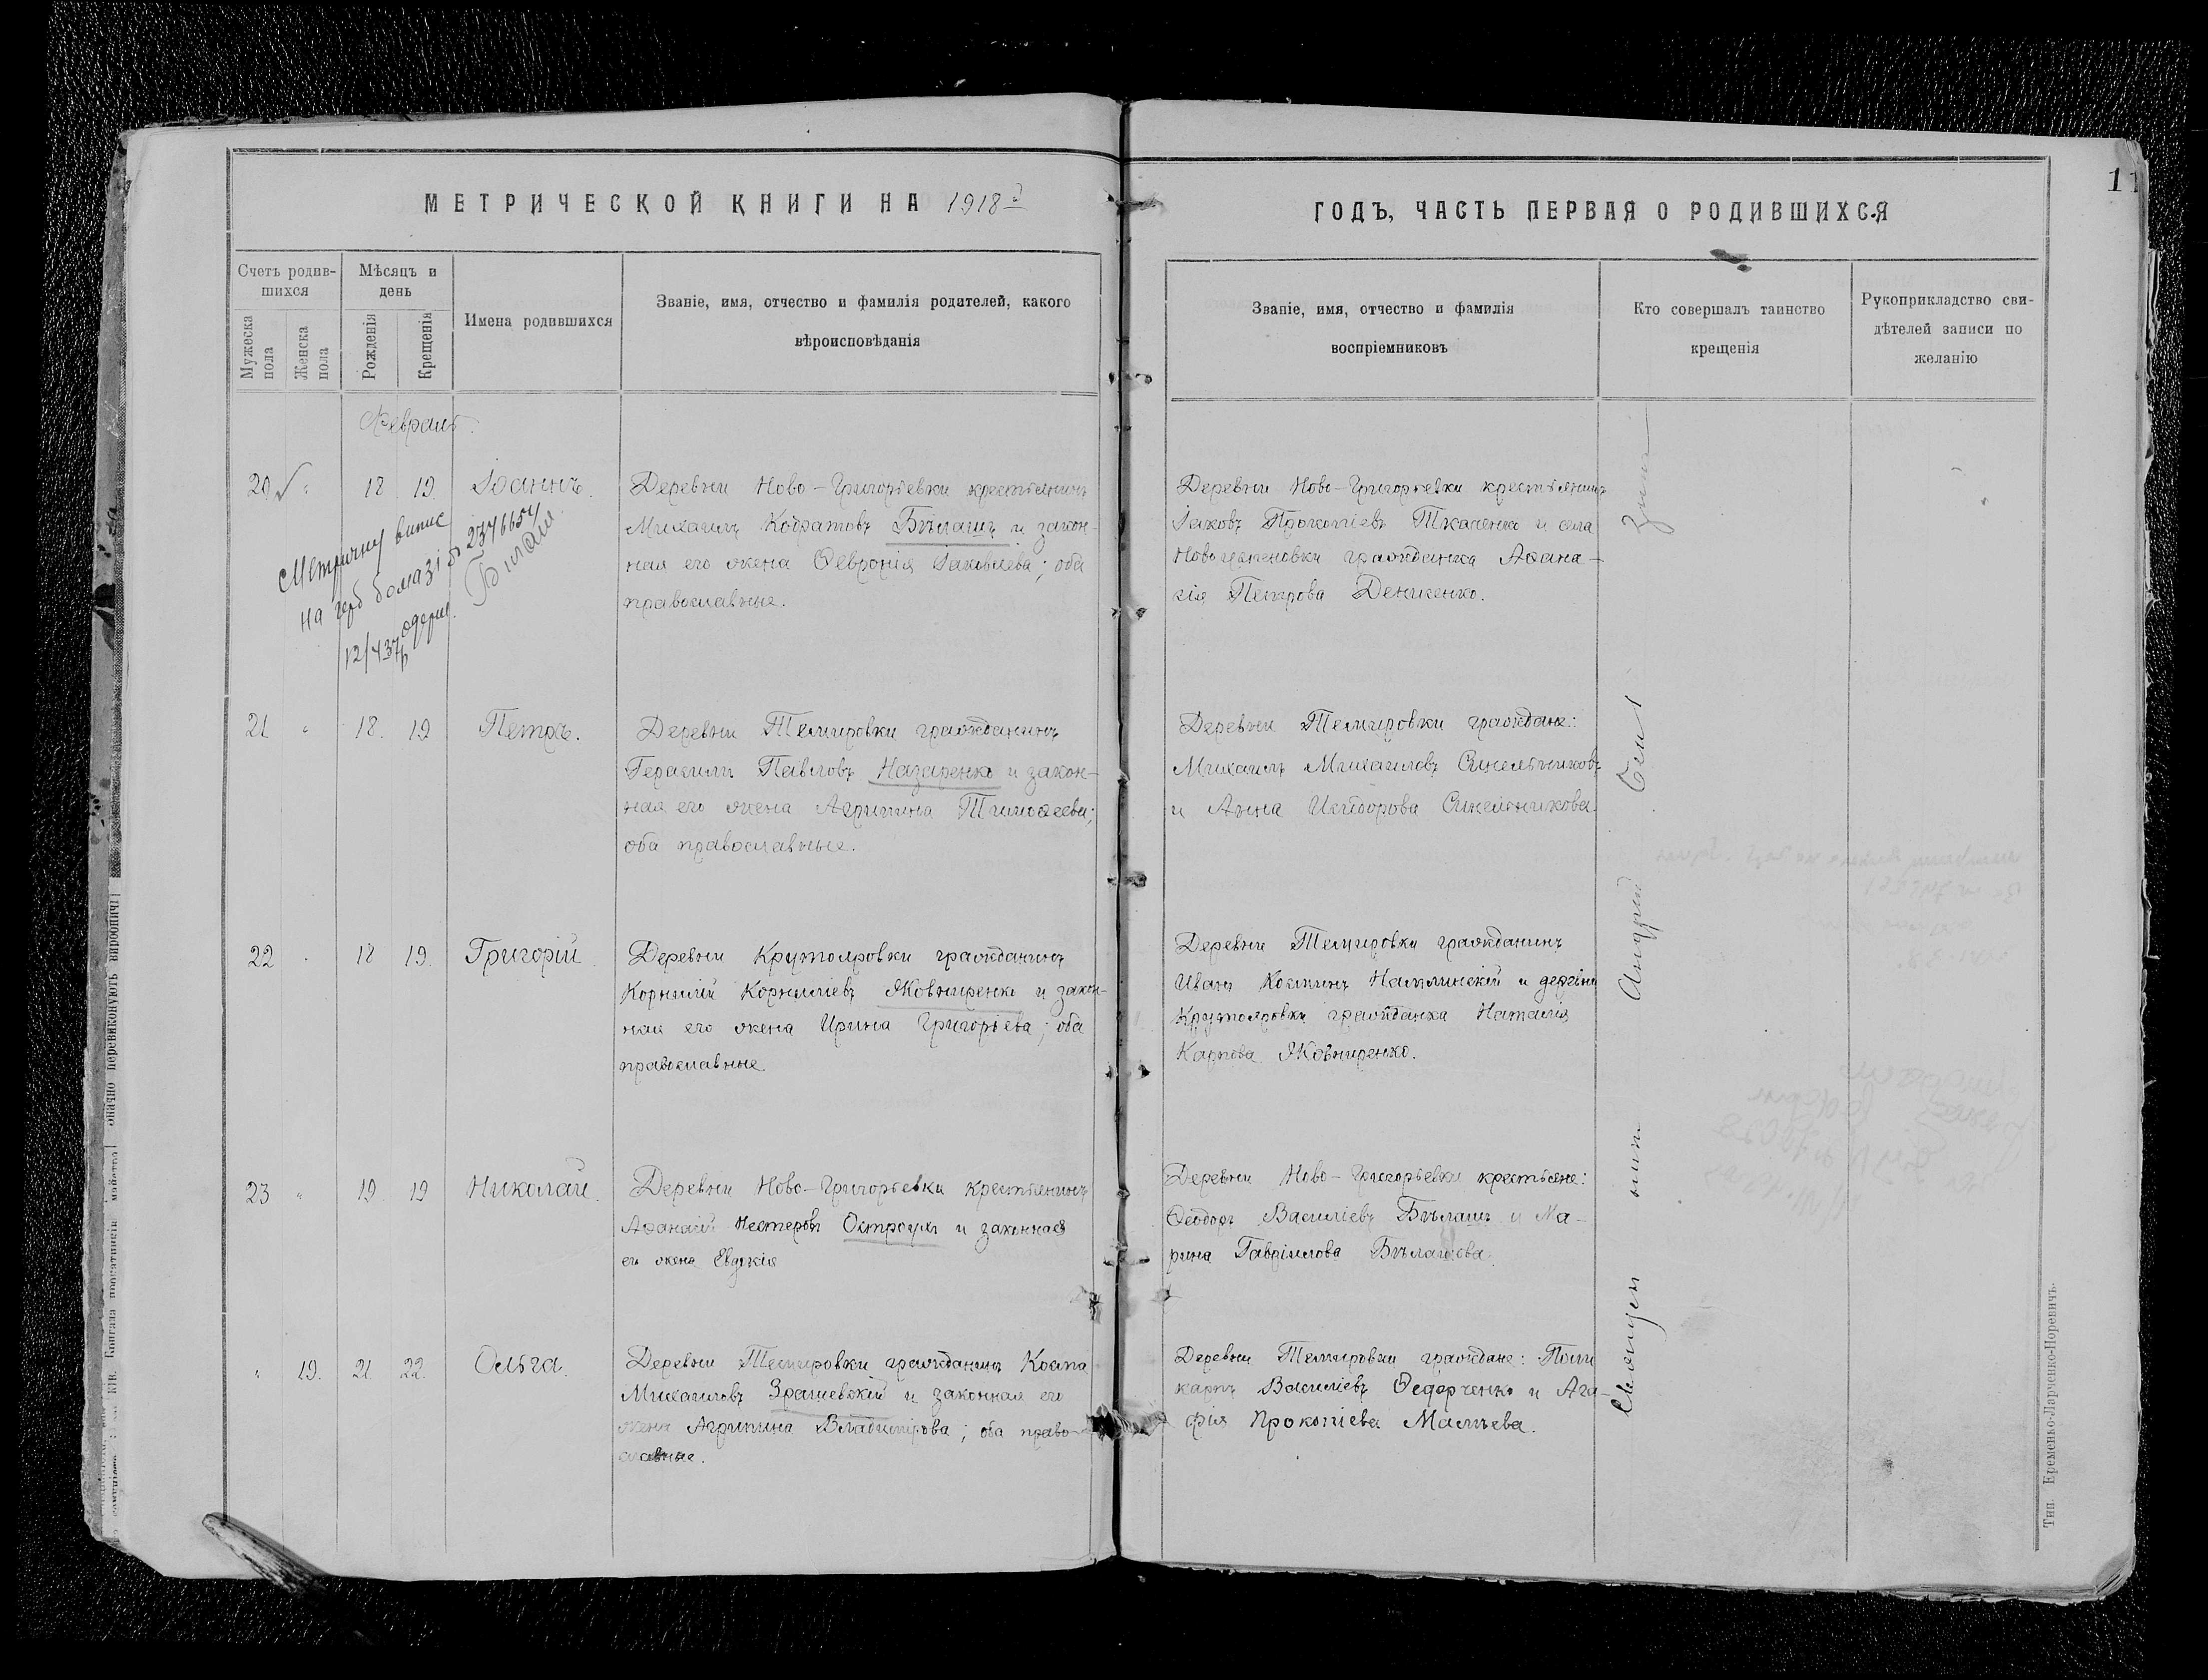 МЕТРИЧЕСКОЙ КНИГИ НА 1918й
ГОДЪ, ЧАСТЬ ПЕРВАЯ О РОДИВШИХСЯ
11
Счетъ родив-
шихся
Мужеска
пола
Женска
пола
Мѣсяцъ и
день
Рожденія
Крещенія
Имена родившихся
Званіе, имя, отчество и фамилія родителей, какого
вѣроисповѣданія
Званіе, имя, отчество и фамилія
воспріемниковъ
Кто совершалъ таинство
крещенія
Рукоприкладство сви-
дѣтелей записи по
желанію
Февраль.
20 " 18 19 Іоаннъ.
Деревни Ново-Григорьевки крестьянинъ
Михаилъ Кодратовъ Бѣлашъ и закон-
ная его жена Ѳевронія Іаковлева; оба
православные.
Деревни Ново-Григорьевки крестьянинъ
Іаковъ Прокопіевъ Ткаченко и села
гражданка Аѳана-
сія Петрова Деникенко.
Метричну випис
на герб бомазі № 2376654
одерж. Білаш
12/4 37р
21 " 18. 19 Петръ.
Деревни Темировки гражданинъ
Герасимъ Павловъ Назаренко и закон-
ная его жена Агрипина Тимоѳеева;
оба православные.
Деревни Темировки граждане:
Михаилъ Михаиловъ Синельниковъ
и Анна Исидорова Синельникова.
22 " 18 19. Григорій.
Деревни Крутояровки гражданинъ
Корнилій Корниліевъ Яковниренко и закон-
ная его жена Ирина Григорьева; оба
православные.
Деревни Темировки гражданинъ
Иванъ и деревни
Крутояровки гражданка Наталія
Карпова Яковниренко.
23 " 19 19 Николай.
Деревни Ново-Григорьевки крестьянинъ
Аѳанасій Нестеровъ Остроухъ и законная
его жена Евдокія
Деревни Ново-Григорьевки крестьяне:
Ѳеодоръ Василіевъ Бѣлашъ и Ма-
рина Гавріилова Бѣлашова.
" 19. 21 22. Ольга.
Деревни Темировки гражданинъ Косма
Михаиловъ Зрашевскій и законная его
жена Агрипина Владимірова; оба право-
славные.
Деревни Темировки граждане: Поли
карпъ Василіевъ Ѳедорченко и Ага-
фія Прокопіева Малѣева.
Священникъ Андрей
Тип. Еременко-Ларченко-Норевичъ.